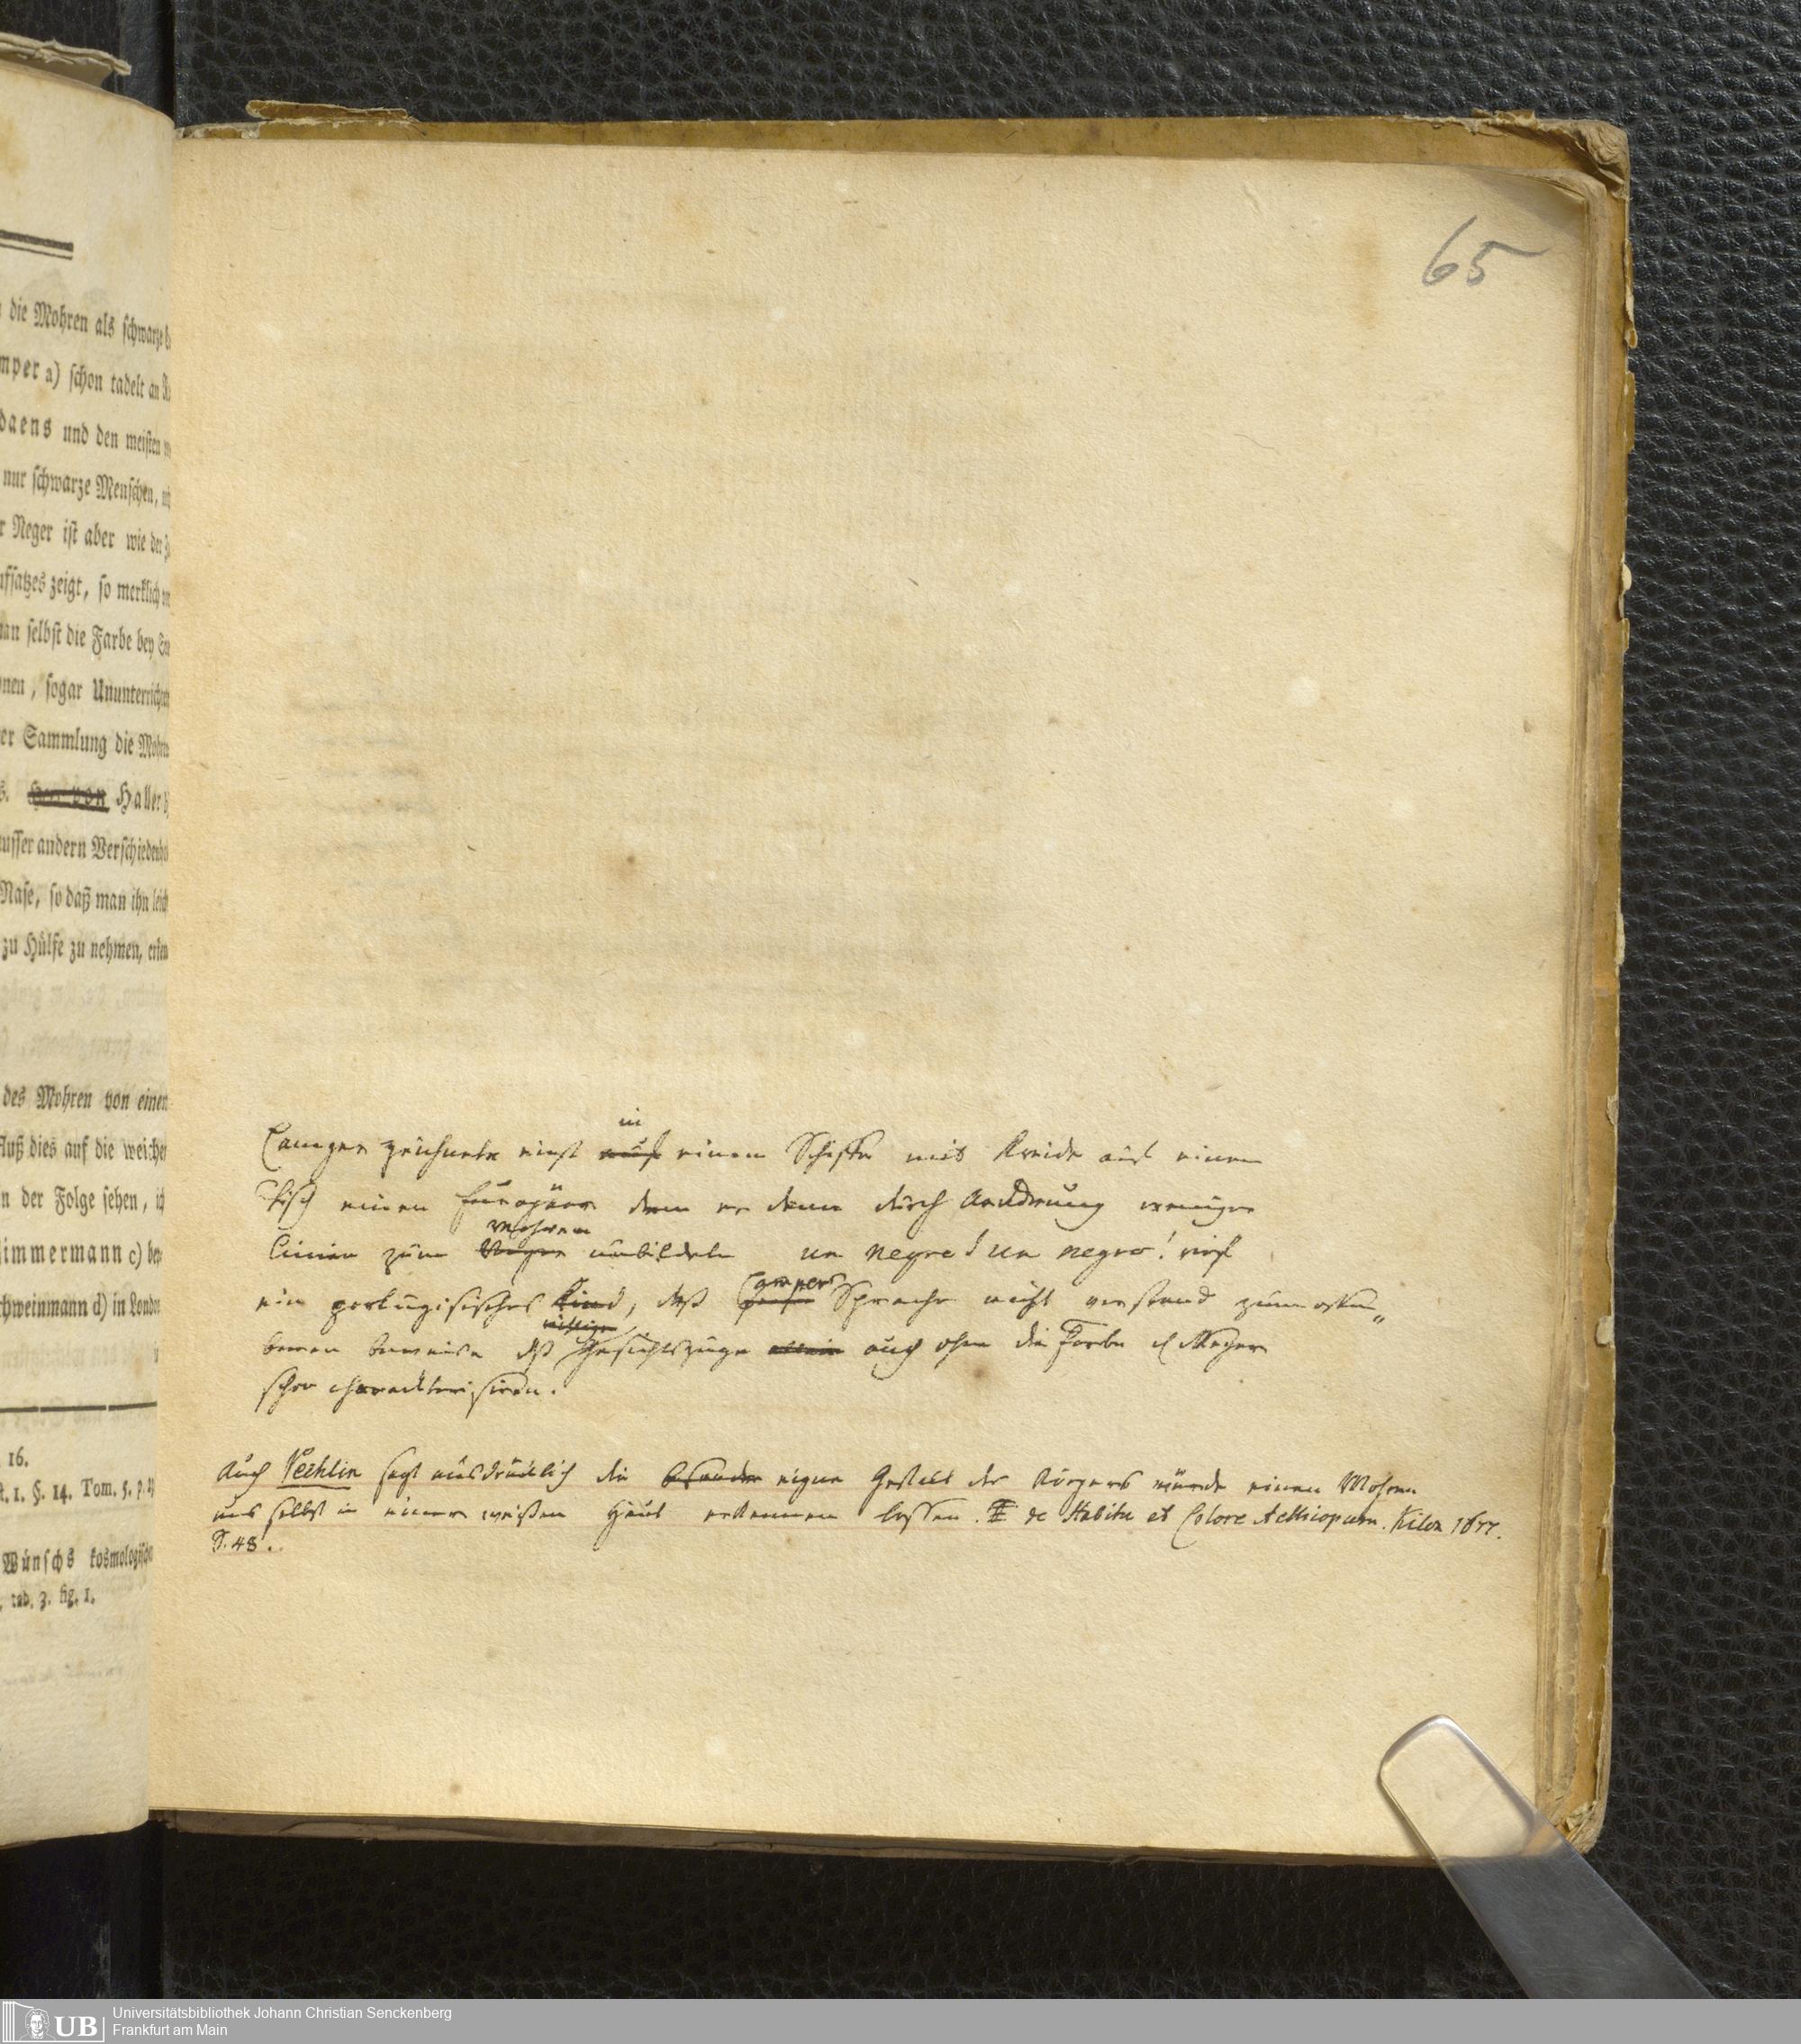 die Mohren als schwarze
mper a) schon tadelt an
daens und den meisten
nur schwarze Menschen,
r Neger ist aber wie der
ufsatzes zeigt, so merklich
man selbst die Farbe bey
nen, sogar Ununterricht
er Sammlung die Mohr
s. Herr von Haller
ausser andern Verschieden
Nase, so daß man ihn leich
zu Hülfe zu nehmen,
des Mohren von einem
fluß dies auf die weiche
n der Folge sehen, ich
Zimmermann c)
chweinmann d) in London
16.
t. 1. §. 14. Tom. 5. p.
Wünschs kosmologische
, tab. 3. fig. 1.
65
in
Camper zeichnete einst auf einem Schiffe mit Kreide auf einen
Tisch einen Europäer den er dann durch Aenderung weniger
Mohren
Linien zum Neger umbildete un negro! un negro! rief
Campers
ein portugisisches Kind, daß Sprache nicht verstand zum offen„
baren beweise dß Gesichtszüge allein auch ohne die Farbe d Neger
schon charackterisiren.
Auch Pechlin sagt ausdrücklich die besondere eigne Gestalt des Körpers würde einen Mohren
uns selbst in einer weißen Haut erkennen lassen. de Habitu et Colore Aethiopum. Kilon 1677.
P. 48.
UB
Universitätsbibliothek Johann Christian Senckenberg
Frankfurt am Main